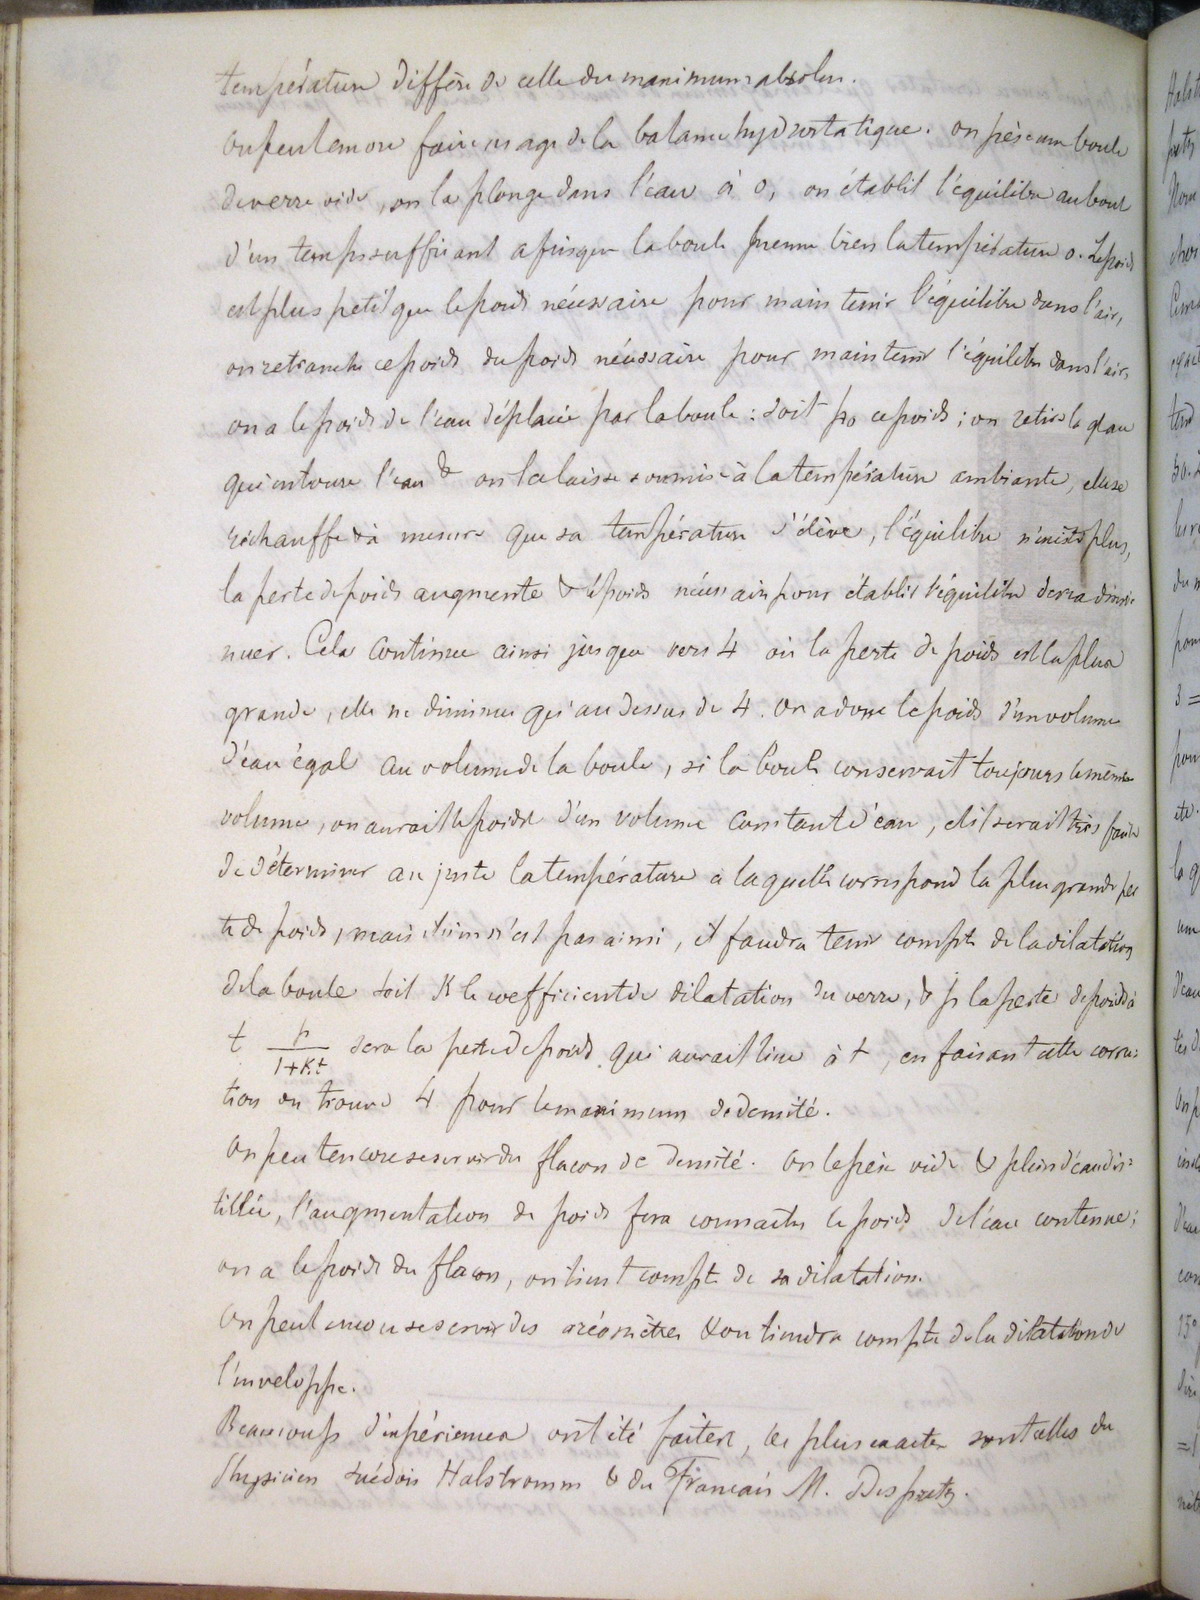 température diffère de celle du maximum absolu.
On peut encore faire usage de la balance hydrostatique. On pèse une boule
de verre vide, on la plonge dans l'eau à 0, on établit l'équilibre au bout
d'un temps suffisant afin que la boule prenne bien la température 0. Le poids
est plus petit que le poids nécessaire pour maintenir l'équilibre dans l'air,
on retranche ce poids du poids nécessaire pour maintenir l'équilibre dans l'air,
on a le poids de l'eau déplacée par la boule : soit p0 ce poids ; on retire la glace
qui entoure l'eau & on la laisse soumise à la température ambiante, elle se
réchauffe & à mesure que sa température s'élève, l'équilibre n'existe plus,
la perte de poids augmente & le poids nécessaire pour établir l'équilibre devra dimi-
nuer. Cela continue ainsi jusque vers 4 où la perte de poids est la plus
grande, elle ne diminue qu'au dessus de 4. On a donc le poids d'un volume
d'eau égal au volume de la boule, si la boule conservait toujours le même
volume, on aurait le poids d'un volume constant d'eau, & il serait très facile
de déterminer au juste la température à laquelle correspond la plus grande per
te de poids, mais il n'en est pas ainsi, il faudra tenir compte de la dilatation
de la boule soit K le coefficient de dilatation du verre, & p la perte de poids à
t p/1+Kt sera la perte de poids qui aurait lieu à t, en faisant cette correc-
tion on trouve 4 pour le maximum de densité.
On peut encore se servir du flacon de densité. On le pèse vide & plein d'eau dis=
tillée, l'augmentation de poids fera connaître le poids de l'eau contenue ;
on a le poids du flacon, on tient compte de sa dilatation.
On peut encore se servir des aréomètres & on tiendra compte de la dilatation de
l'enveloppe.
Beaucoup d'expériences ont été faites, les plus exactes sont celles du
Physicien suédois Halstromm & du Français M. Despretz.